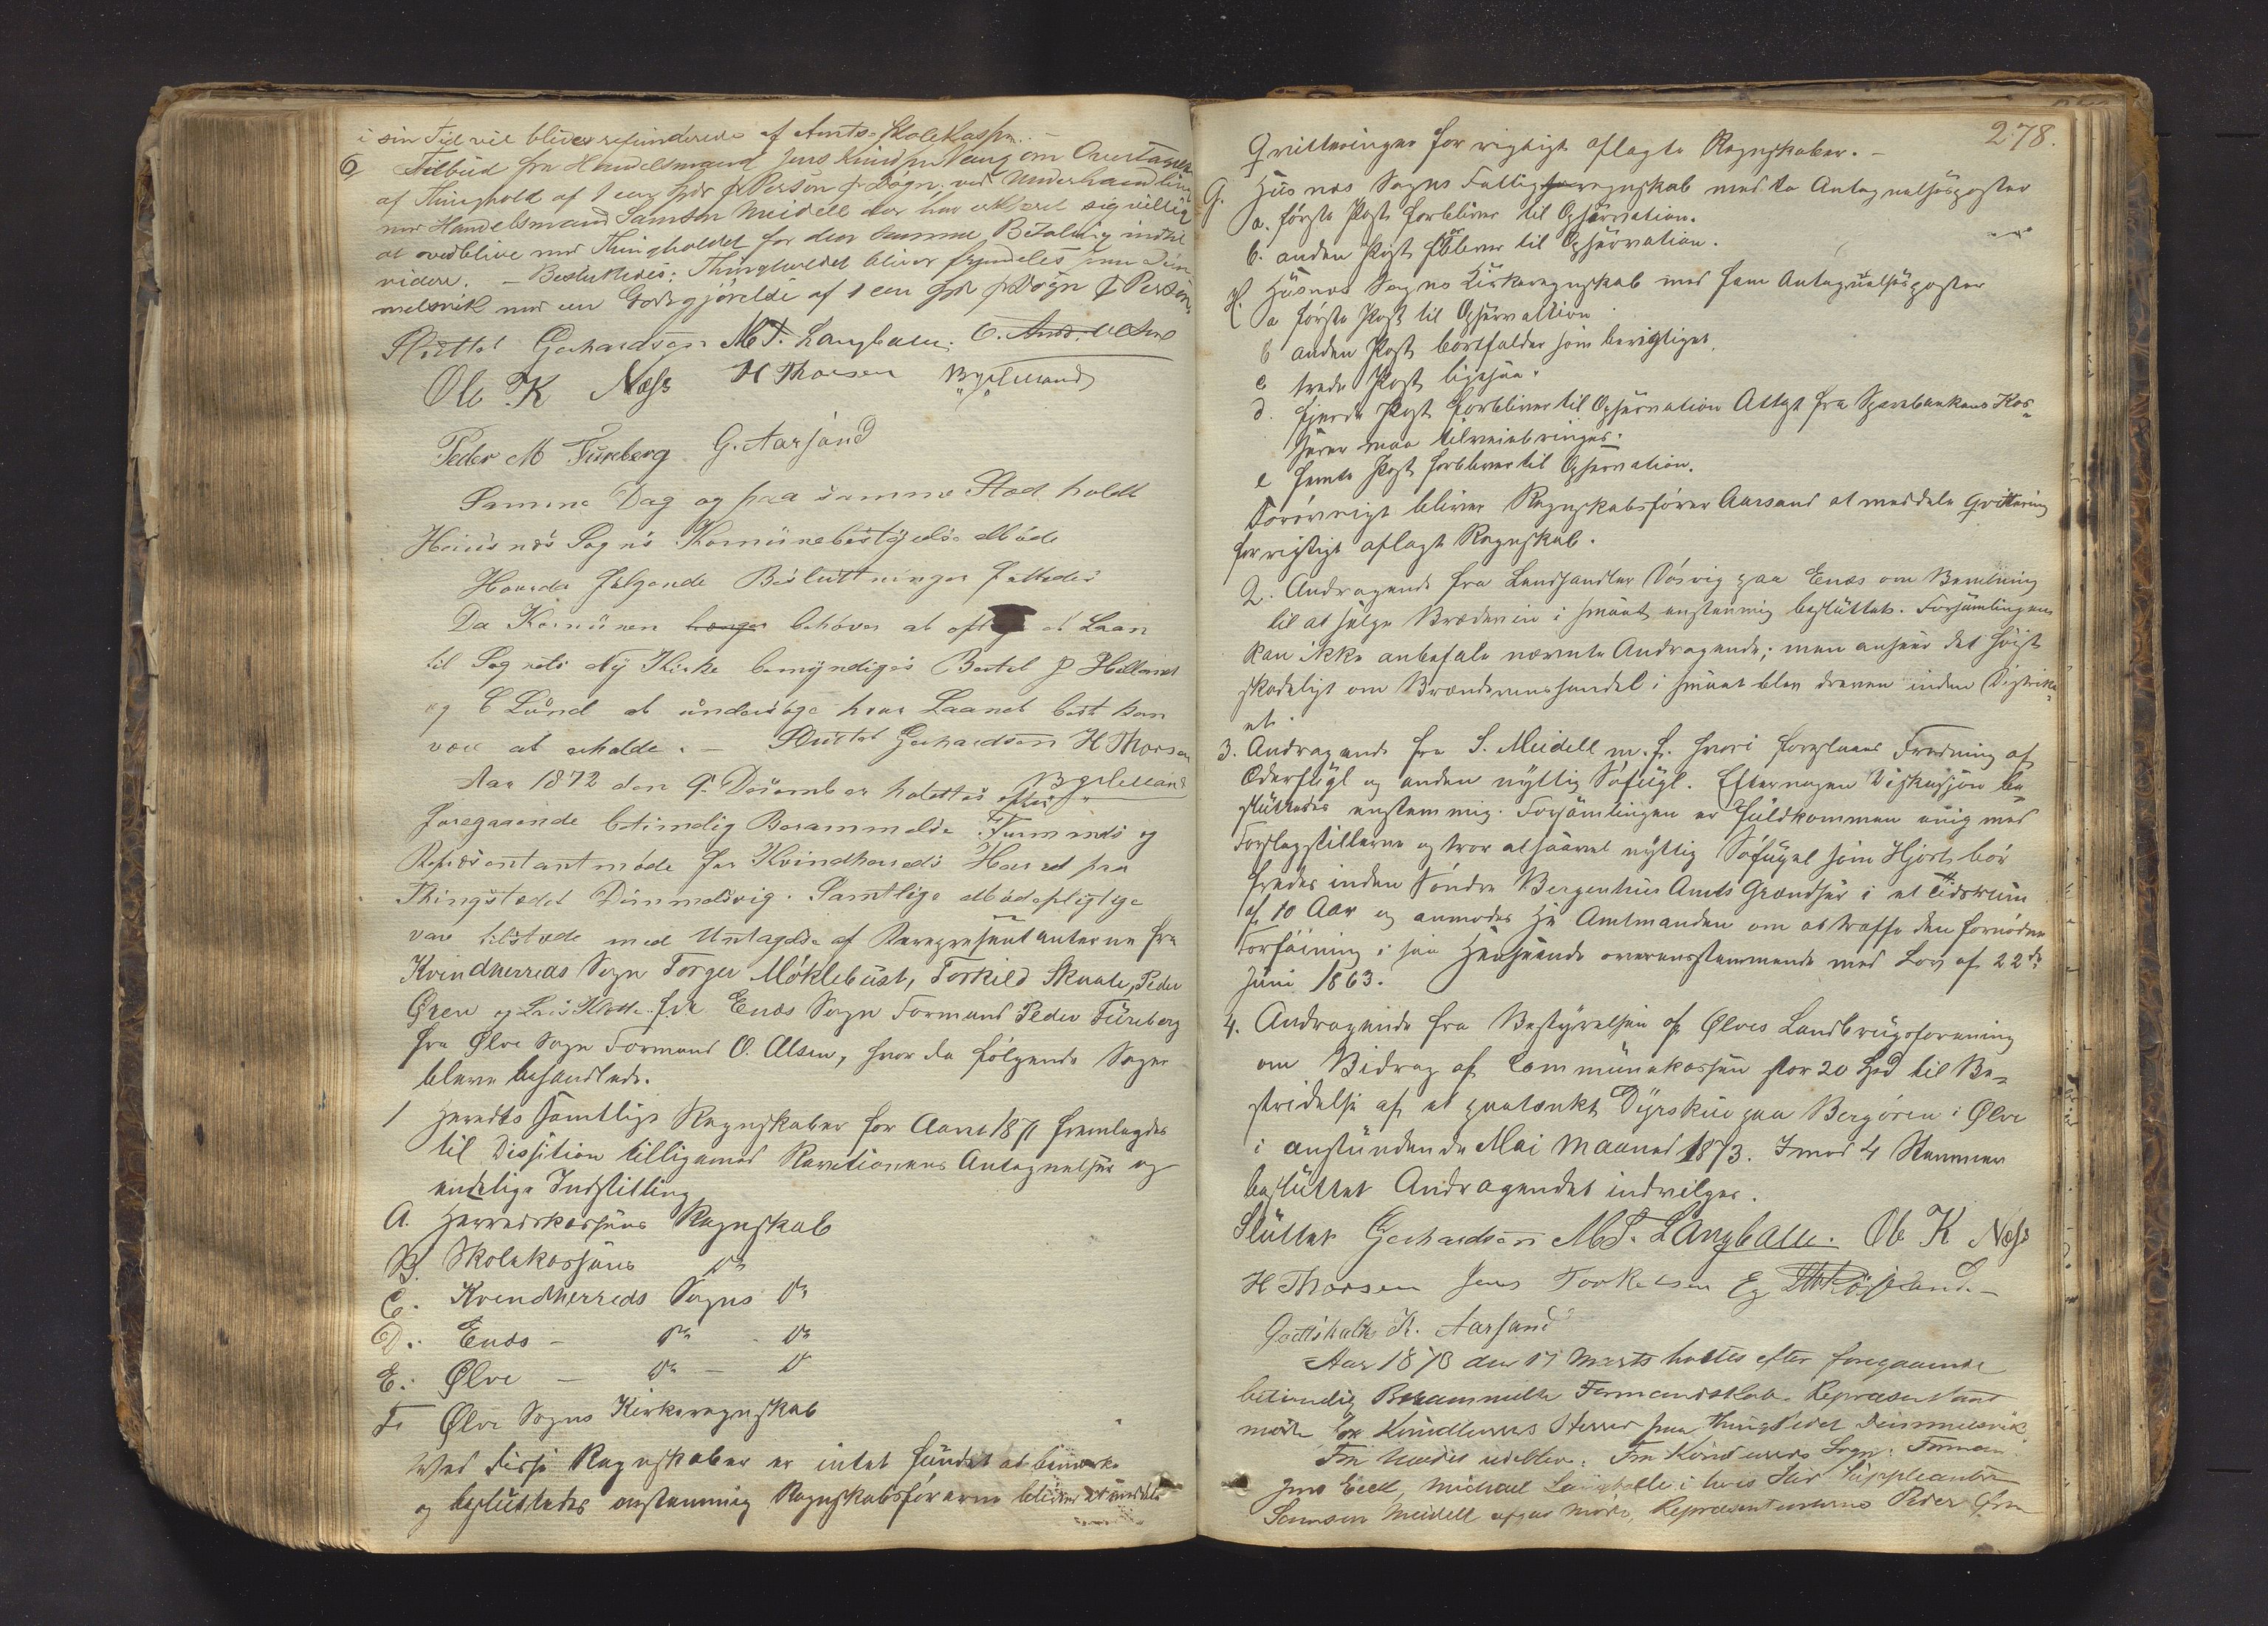 i sin Tid vil bliver refunderede af Amts-Skolekassen. –
6 Tilbud fra Handelsmand Jens om Overtagelse
af Thinghold af 1 en Spd pr Person pr Døgn, ved Underhandling
mod Handelsmand Samson Meidell der har erklæret sig villig
at vedblive med Thingholdet for den samme Betaling indtil
videre. – Besluttedes: Thingholdet bliver fremdeles paa Dim-
melsvik mod en Godtgjørelse af 1 en Spd pr Døgn pr Person
Sluttet Gerhardsen M T. Langballe. O.
Ole K Næss H Thorsen
Peder M Fureberg G. Aarsand
Samme Dag og paa samme Sted holdt
Huusnæs Sogns Komünebestÿrelse Møde
Hvorda følgende Beslutninger fattedes
Da Komünen trænger behøver at optage et Laan
til Sognets Nÿ Kirke bemÿndiges Bertel P Helland
og C Lünd at ündersøge hvor Laanet best kan
være at erholde. – Sluttet Gerhardsen H Thorsen
Aar 1872 den 9. Desember holdttes efter
foregaaende betimelig Berammelse Formands og
Representantmøde for Kvindherreds Herred paa
Thingstedet Dimmelsvig. Samtlige Mødepligtige
vare tilstæde med Untagelse af Reprepresentanterne fra
Kvindherreds Sogn Torger Møklebust, Torkild Skaale, Peder
Øren og Lars Klette. fra Enæs Sogn Formand Peder Füreberg
fra Ølve Sogn Formand O. Olsen, hvor da følgende Sager
bleve behandlede.
1 Heredts samtlige Regnskaber for Aaret 1871 fremlagdes
til Dissition tilligemed Revetionens Antegnelser og
endelige Indstilling
A. Herredskassens Regnskab
B. Skolekassens Do
C. Kvindherreds Sogns Do
D. Enæs – Do – Do
E. Ølve – Do – Do
F. Ølve Sogns Kirkeregnskab
Ved disse Regnskaber er intet fundet at bemærke
og besluttedes enstemmig Regnskabsførerne bliver at meddele
278.
Qvitteringer for rigtigt aflagte Regnskaber. –
G. Hüsnæs Sogns Fattigregnskab med to Antegnelsesposter
a. første Post forbliver til Opservation.
b. anden Post forbliver til Opservation.
H. Hüsnæs Sogns Kirkeregnskab med fem Antegnelsesposter
a første Post til Opservattion
b anden Post bortfalder som berigtiget.
c trede Post ligesaa.
d. fjerde Post forbliver til Opservation Attest fra Sparebankens Kas-
serer maa tilveiebringes.
e femte Post forbliver til Opservation.
Forøvrigt bliver Regnskabsfører Aarsand at meddele Qvittering
for rigtigt aflagt Regnskab.
2. Andragende fra Landhandler Døsvig paa Enæs om Bevilning
til at sælge Brædeviin i smaat enstemmig besluttet. Forsamlingen
kan ikke anbefale nævnte Andragende; men anseer det høist
skadeligt om Brændevinshandel i smaat blev dreven inden Distrik-
et.
3. Andragende fra S. Meidell m. f. hvori foreslaaes Fredning af
Æderfügl og anden nÿttig Søfügl. Efter nogen Diskussjon be-
sluttedes enstemmig. Forsamlingen er füldkommen enig med
Forslagstillerne og tror at saavel nÿttig Søfügel som Hjort bør
fredes inden Søndre Bergenhus Amts Grændser i et Tidsrum
af 10 Aar og anmodes Hr Amtmanden om at træffe den fornødne
Forføining i saa Henseende overensstemmende med Lov af 22de
Juni 1863.
4. Andragende fra Bestÿrelsen af Ølves Landbrugsforening
om Bidrag af Commünekassen stor 20 Spd til Be-
stridelse af et paatænkt Dÿrskue paa Bergøren i Ølve
i anstundende Mai Maaned 1873. Imod 4 Stemmer
besluttet Andragendet indvilges.
Slüttet Gerhardsen M T. Langballe. Ole K Næss
H Thorsen Jens Torkelsen
Gottskalk K. Aarsand
Aar 1873 den 17 Marts holtes efter foregaaende
betimelig Berammelse Formandskab. Repræsentant
møde for Kvindherres Herred paa Thingstedet Dimmelsvik
Fra Mødet udeblev: Fra Kvindherreds Sogn: Formand
Jens Eeck, Michael Langballe i hvis Sted Suppleanten
Samson Meidell afgav Møde, Repræsentanterne Peder Øren